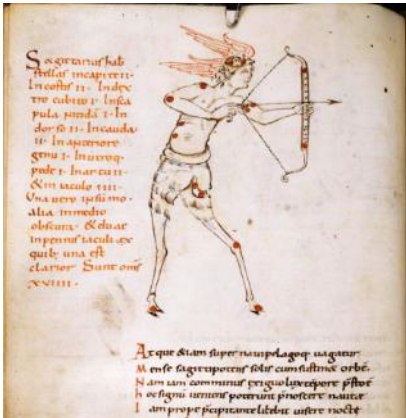 Sagittarius hab
stellas in capite · ii ·
In costis · ii · In dex
tro cubito · i · In sca
pula · i · In
dorso · ii · In cauda ·
ii · In anteriore
genu · i · In utroq
pede · i · In arcu · ii ·
& in iaculo · iiii ·
Una vero
alia in medio
obscura · & duae
in pennis iaculi ex
quib; una est
clarior Sunt om̅s
xviiii ·
Atque &iam super navi pelagoq vagatur
Mense sagittipotens solis cum sustin& orbe̅
Nam iam comminus exiguo lux te̅pore p̅sto e̅
hoc signu̅ venient poterunt p̅noscere nautae
Iam prope p̅cipitante licebit visere nocte